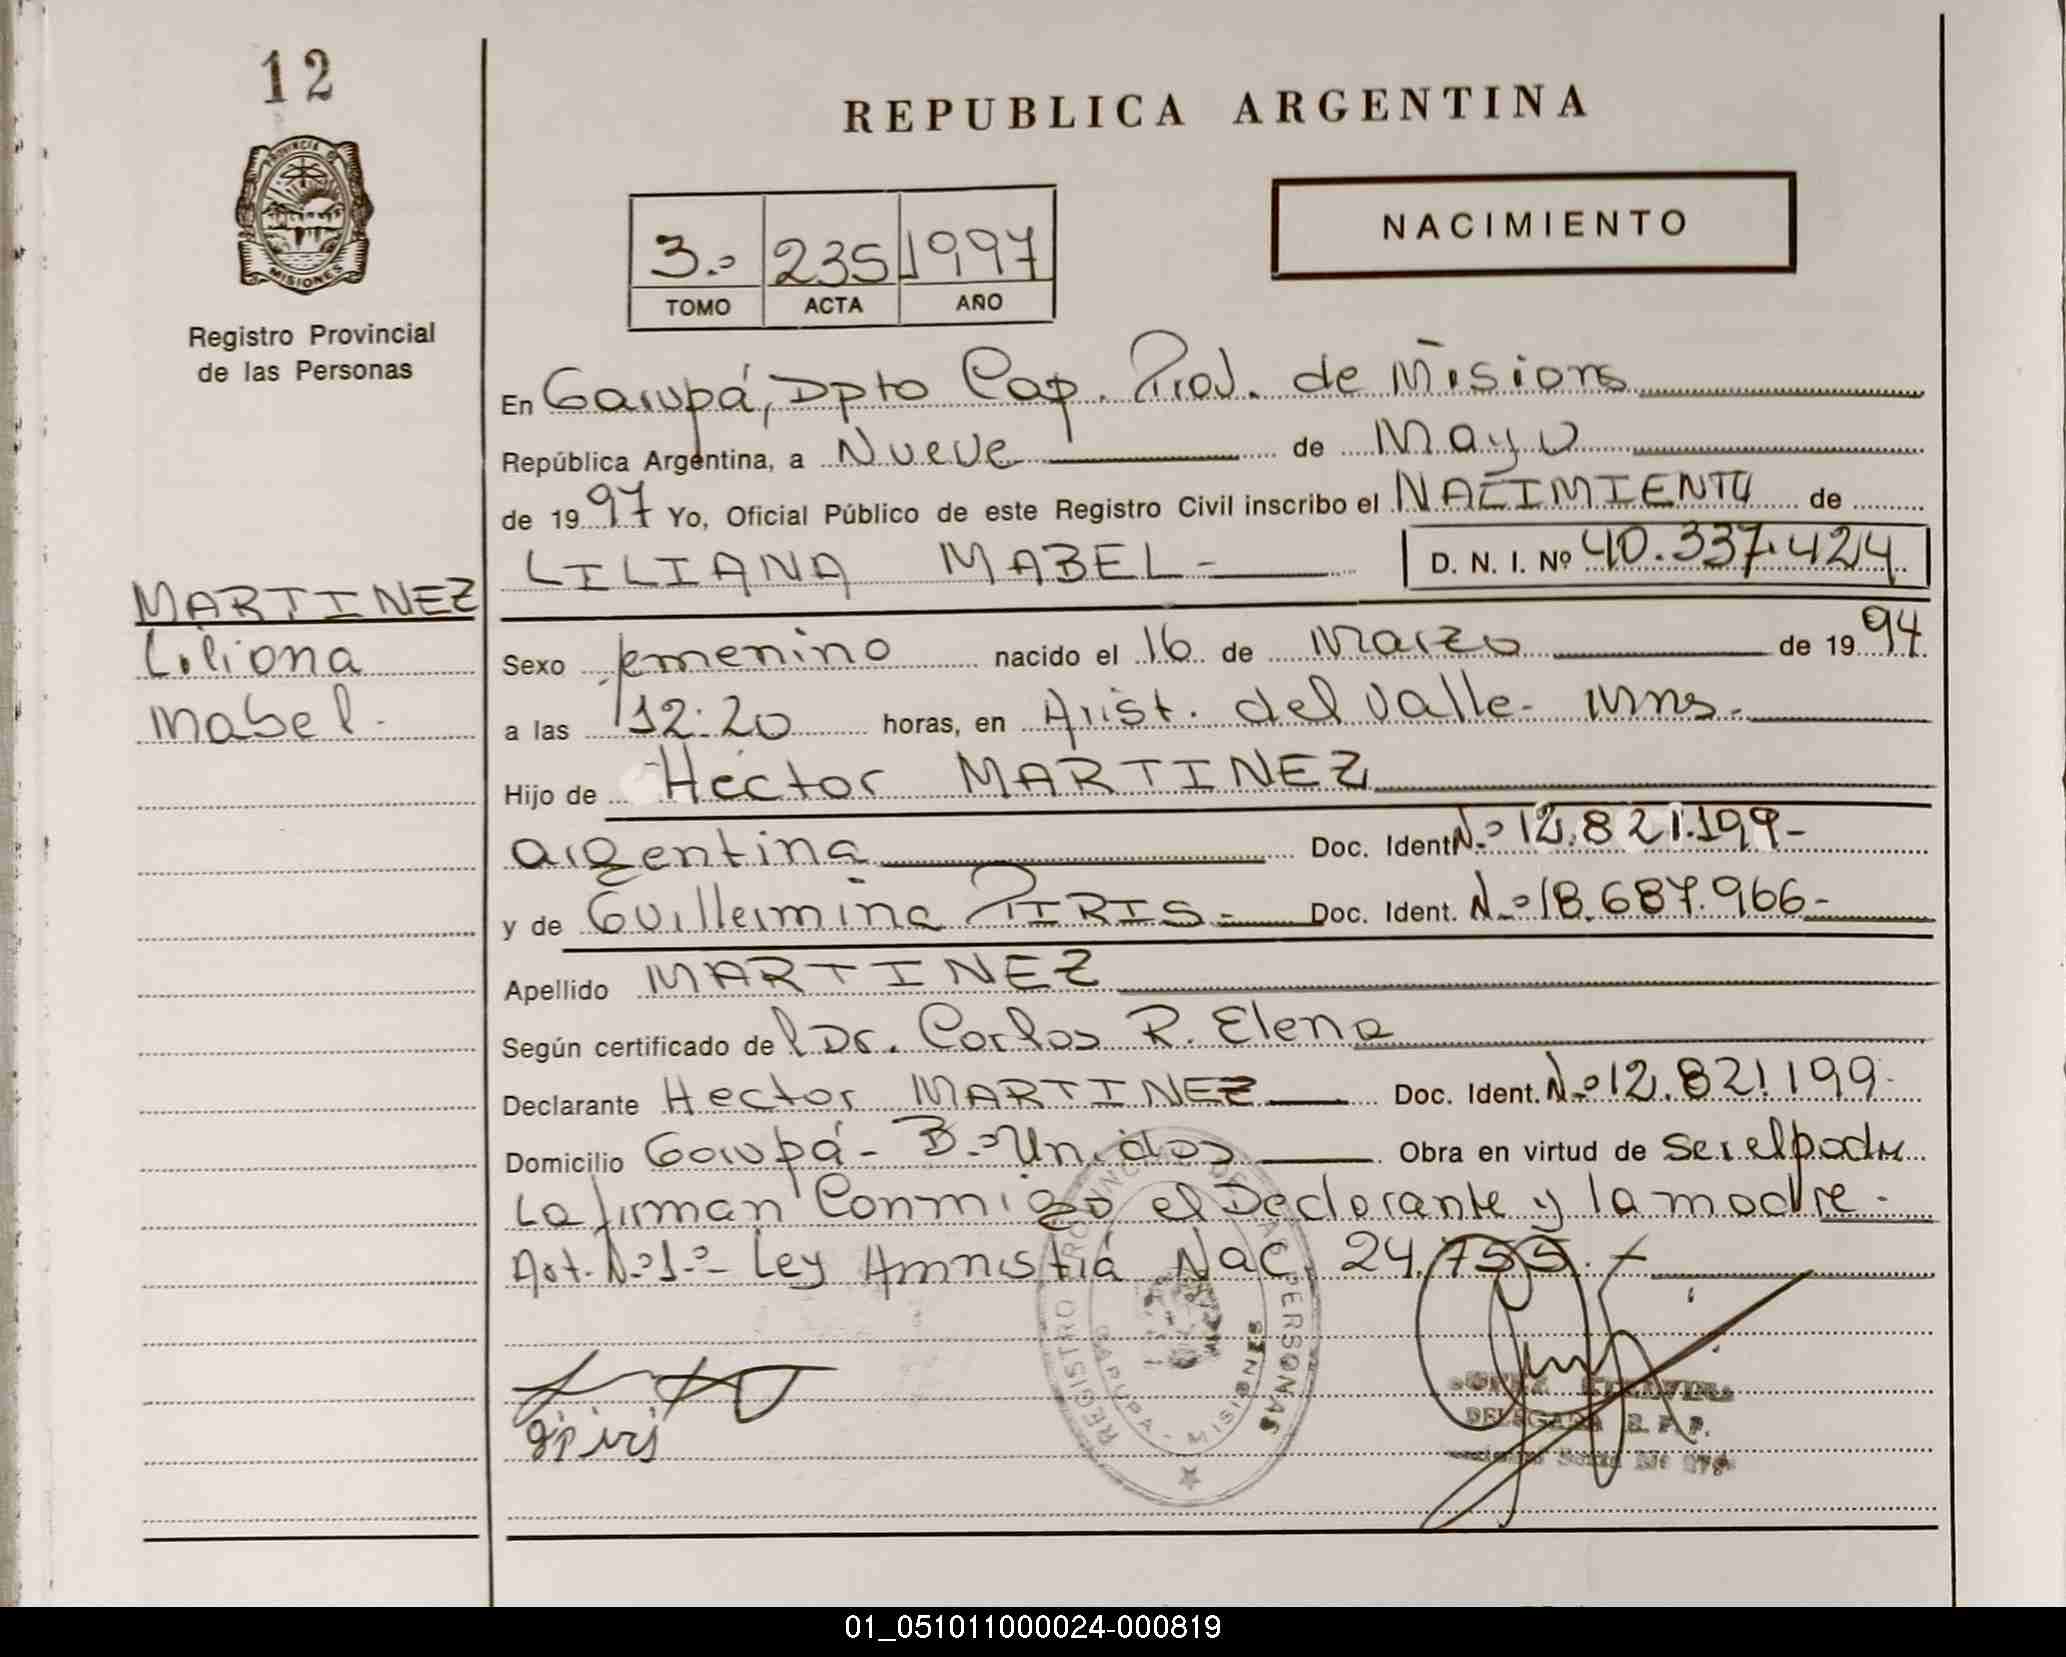 12
REPUBLICA ARGENTINA
PROVINCIA DE
MISIONES
Registro Provincial
de las Personas
3.º 235 1997
TOMO ACTA AÑO
NACIMIENTO
En Garupá, Dpto Cap. Prov. de Misions
República Argentina, a Nueve de Mayo
de 1997 Yo, Oficial Público de este Registro Civil inscribo el NACIMIENTO de
LILIANA MABEL - D. N. I. Nº 40.337.424
MARTINEZ
Liliana
Mabel.
Sexo femenino nacido el 16 de Marzo de 1994
a las 12:20 horas, en Arist. del Valle - Mns.
Hijo de Hector MARTINEZ
argentina Doc. Ident N.º 12.821.199-
y de Guillermina PIRIS.- Doc. Ident. N.º 18.687.966-
Apellido MARTINEZ
Según certificado del Dr. Carlos R. Elena
Declarante Hector MARTINEZ Doc. Ident. N.º 12.821.199.
Domicilio Garupá - B.º Unidos Obra en virtud de ser el padre
La firman Conmigo el Declarante y la madre.
Art. N.º 1.º - Ley Amnistía Nac. 24.755.-
REGISTRO PROVINCIAL DE LAS PERSONAS
GARUPA - MISIONES
g piris
DELEGADA R. P. P.
01_051011000024-000819